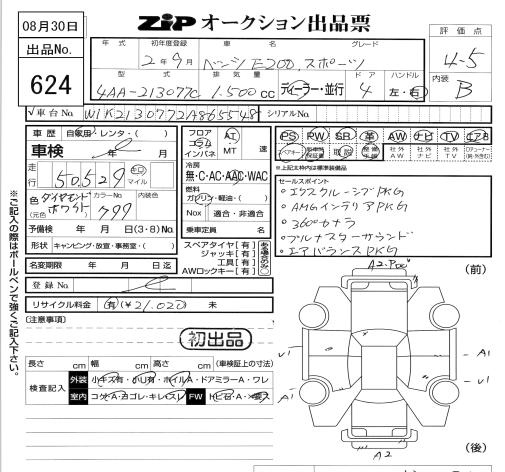 08月30日
ZIP オークション出品票
出品No.
624
評価点
4-5
内装
B
年式 初年度登録 車名 グレード
2年9月 ベンツ E200 スポーツ
型式 排気量 ドア ハンドル
4AA-213077C 1,500cc ディーラー・並行 4 左・右
車台No. W1K2130772A865548 シリアルNo.
車歴 自家用・レンタ・( )
車検 年 月
走行 50,529 キロ マイル
色 ダイヤモンドホワイト カラーNo. 799 内装色
(元色)
予備検 年 月 日(3・8)No.
形状 キャンピング・放置・事務室・( )
名変期限 年 月 日迄
登録No.
リサイクル料金 有(¥21,020) 未
フロア コラム インパネ AT MT 速
冷房
無・C・AC・AAC・WAC
燃料
ガソリン・軽油・( )
Nox 適合・非適合
乗車定員 名
スペアタイヤ[有]
ジャッキ[有]
工具[有]
AWロックキー[有]
PS PW SR 革 AW ナビ TV エアB
取説 社外AW 社外ナビ 社外TV
※上記太枠内は標準装備品
セールスポイント
・エクスクルーシブPKG
・AMGインテリアPKG
・360°カメラ
・ブルメスターサウンド
・エアバランスPKG
(注意事項)
初出品
長さ cm 幅 cm 高さ cm (車検証上の寸法)
検査記入 外装 小キズ有・小U有・ホイルA・ドアミラーA・ワレ
室内 コゲA・ヨゴレ・キレ・スレ FW トビ石・A・
※ご記入の際はボールペンで強くご記入下さい。
(前)
U1
A1
U1
A1
A2
(後)